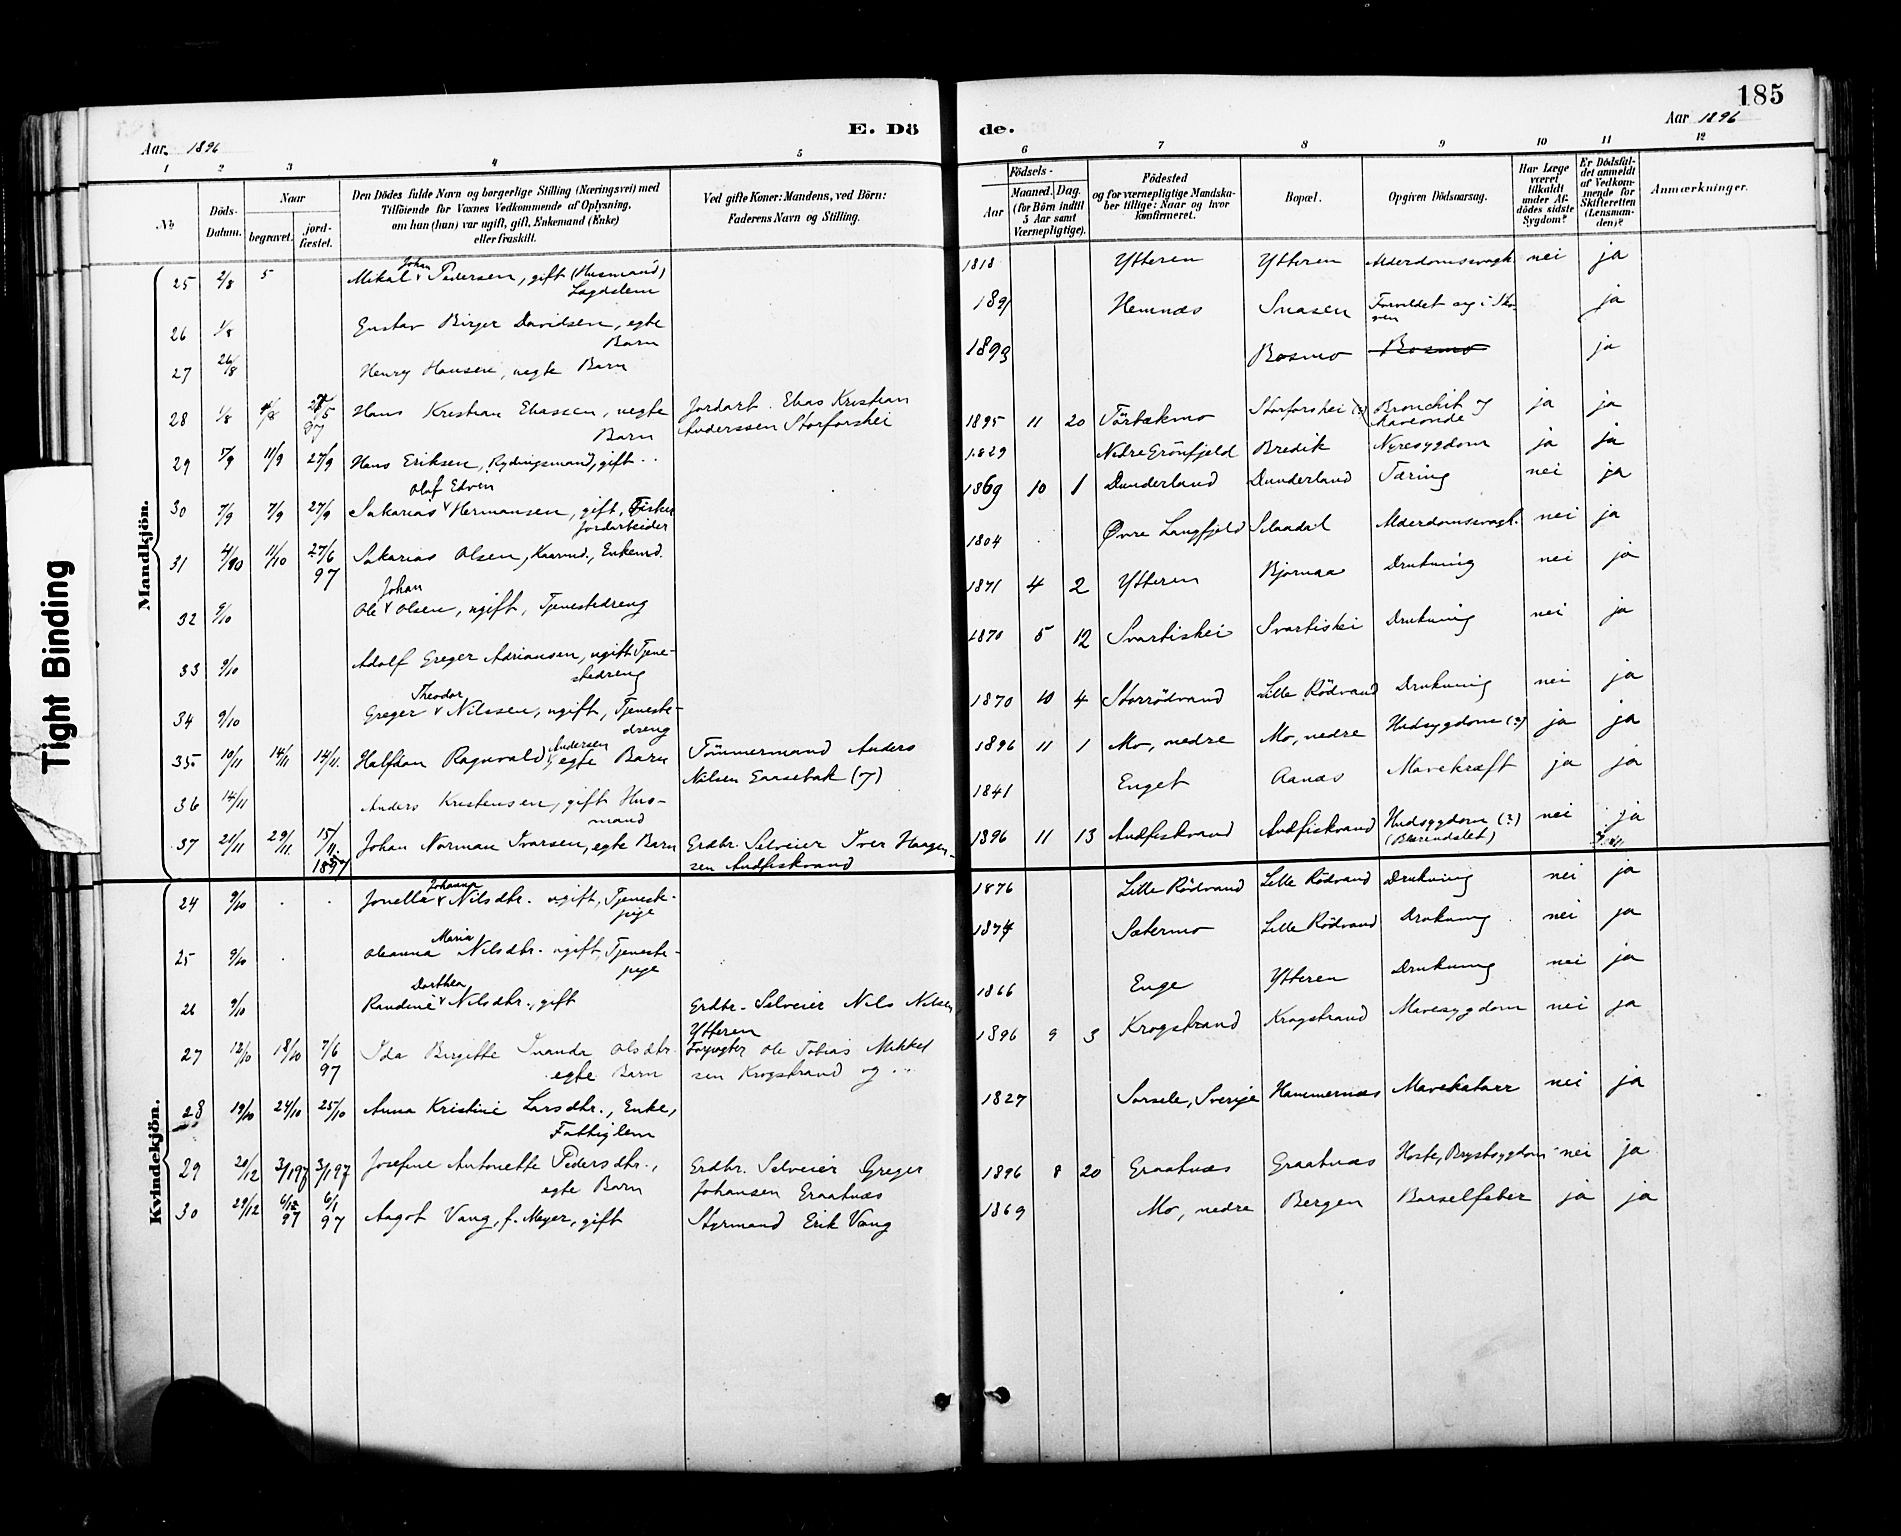 185
E. Döde.
Aar 1896
Aar 1896
1 2 3 4 5 6 7 8 9 10 11 12
No
Döds-Datum.
Naar
begravet.
jord-fæstet.
Den Dödes fulde Navn og borgerlige Stilling (Næringsvei) med
Tilföiende for Voxnes Vedkommende af Oplysning,
om han (hun) var ugift, gift, Enkemand (Enke)
eller fraskilt.
Ved gifte Koner: Mandens, ved Börn:
Faderens Navn og Stilling.
Födsels-
Aar
Maaned. Dag.
(for Börn indtil
5 Aar samt
Værnepligtige).
Födested
og for værnepligtige Mandska-
ber tillige: Naar og hvor
konfirmeret.
Bopæl.
Opgiven Dödsaarsag.
Har Læge
været
tilkaldt
under Af-
dödes sidste
Sygdom?
Er Dödsfal-
det anmeldt
af Vedkom-
mende for
Skifteretten
(Lensman-
den)?
Anmærkninger.
Mandkjön.
25 2/8 5 Mikal Johan Pedersen, gift (Husmand) 1818 Ytteren Ytteren Alderdomssvagh. nei ja
Lægdslem
26 1/8 Gustav Birger Davidsen, egte Barn 1891 Hemnæs Snasen Forvildet sig i Skoven ja
27 26/8 Henry Hansen, uegte Barn 1893 Bosmo Bosmo ja
28 1/8 27/5 97 Hans Kristian Eliassen, uegte Barn Jordarb. Elias Kristian Anderssen Storforshei 1895 11 20 Törbekmo Storforshei (?) Bronchit og ja ja
29 5/9 11/9 27/9 Hans Eriksen, Rydningsmand, gift 1829 Nedre Grönfjeld Bredik Nyresygdom ja ja
30 7/9 7/9 27/9 Sakarias Olaf Edvin Hermansen, gift, Fisker 1869 10 1 Dunderland Dunderland Tæring nei ja
Jordarbeider
31 4/10 11/10 27/6 97 Sakarias Olsen, Kaarmd., Enkemd. 1804 Övre Langfjeld Alderdomssvagh. nei ja
32 9/10 Ole Johan Olsen, ugift, Tjenestedreng 1871 4 2 Ytteren Bjørnaa Drukning nei ja
33 9/10 Adolf Greger Adriansen, ugift Tjene-
stedreng 1870 5 12 Svartishei Svartishei Drukning nei ja
34 9/10 Greger Theodor Nilssen, ugift, Tjeneste-
dreng 1870 10 4 Storrödvand Lille Rödvand Drukning nei ja
35 10/11 14/11 14/11. Halfdan Ragnvald Andersen egte Barn Tömmermand Anders Nilsen 1896 11 1 Mo, nedre Mo, nedre Hudsygdom (?) ja ja
36 14/11 Anders Kristensen, gift Hus-
mand 1841 Enget Aanæs Mavekræft ja ja
37 21/11 29/11. 15/11. 1897 Johan Norman Ivarsen, egte Barn Erdbr. Selveier Iver Haagen-
sen Andfiskvand 1896 11 13 Andfiskvand Andfiskvand Hudsygdom (?) nei ja
Kvindekjön.
24 9/10 Jonella Johanna Nilsdtr. ugift, Tjeneste-
pige 1876 Lille Rödvand Lille Rödvand Drukning nei ja
25 9/10 Oleanna Maria Nilsdtr. ugift, Tjeneste-
pige 1874 Sætermo Lille Rödvand Drukning nei ja
26 9/10 Randine Dorthea Nilsdtr., gift Erdbr. Selveier Nils Nilsen, Ytteren 1866 Enge Ytteren Drukning nei ja
27 12/10 18/10 7/6 97 Ida Birgitte Olsdtr. egte Barn Ole Tobias Mikkel
sen Krogstrand og 1896 9 3 Krogstrand Krogstrand Mavesygdom nei ja
28 19/10 24/10 25/10 Anna Kristine Larsdtr., Enke, Fattiglem 1827 Sorsele, Sverige Hammernæs Mavekatarr nei ja
29 20/12 3/1 97 3/1 97 Josefine Antonette Pedersdtr., egte Barn Erdbr. Selveier Greger Johansen Graatnæs 1896 8 20 Graatnæs Graatnæs Hoste, Brystsygdom nei ja
30 29/12 6/12 97 6/1 97 Aagot Vang, f. Meyer, gift Styrmand Erik Vang 1869 Mo, nedre Bergen Barselfeber ja ja
Tight Binding